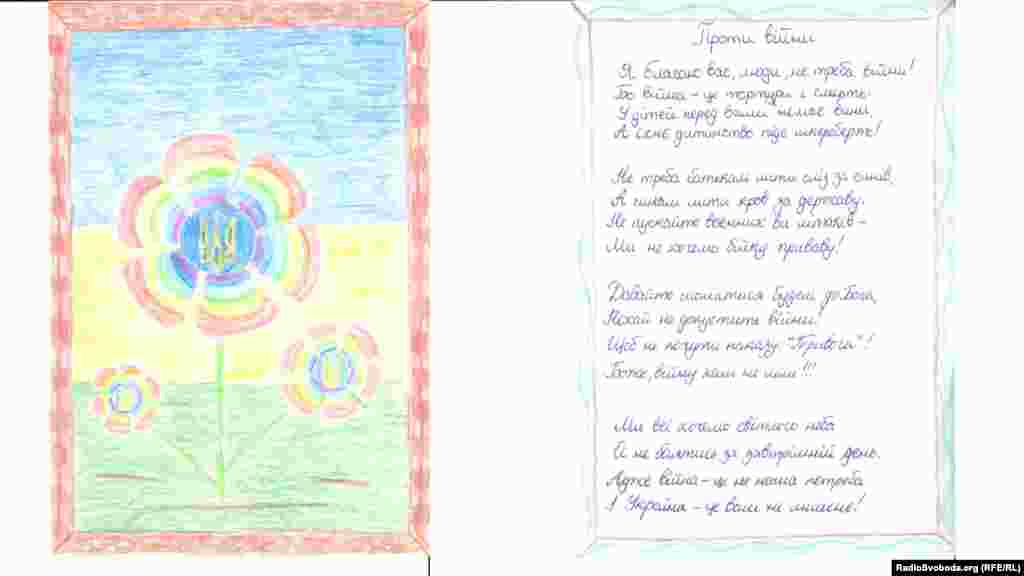 Проти війни
Я благаю вас, люди, не треба війни!
Бо війна - це тортури і смерть.
У дітей перед вами немає вини,
А їхнє дитинство піде шкереберть!
Не треба батькам лити сліз за синів,
А синам лити кров за державу.
Не пускайте воєнних ви літаків -
Ми не хочемо бійку криваву!
Давайте молитися будем до Бога,
Нехай не допустить війни!
Щоб не почути наказу "Тривога"!
Боже, війну нам не шли!!!
Ми всі хочемо світлого неба
Й не боятись за завтрашній день.
Адже війна - це не наша потреба
І Україна - це вам не
RadioSvoboda.org (RFE/RL)